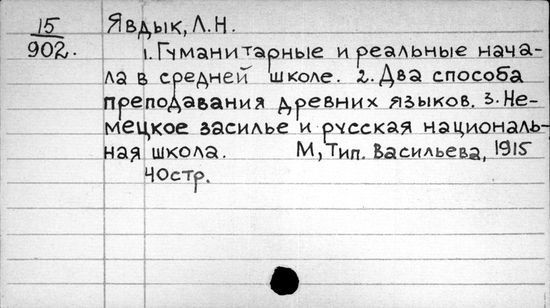 15 Явдык, Л.Н.
902. 1. Гуманитарные и реальные нача-
ла в средней школе. 2. Два способа
преподавания древних языков. 3. Не-
мецкое засилье и русская националь-
ная школа. М, Тип. Васильева, 1915
40стр.